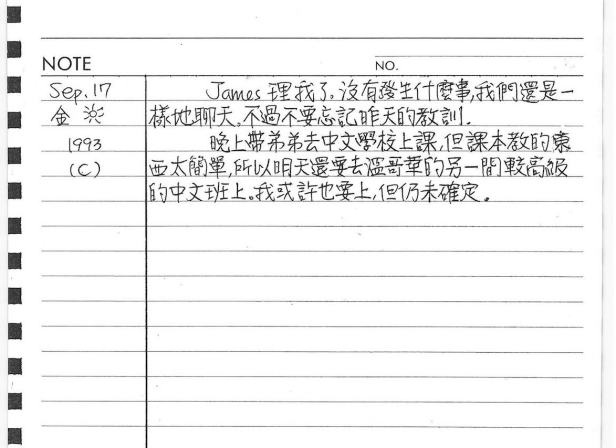 NOTE
NO.
Sep. 17
金
1993
(C)
James 理我了。沒有發生什麼事,我們還是一
樣地聊天。不過不要忘記昨天的教訓.
晚上帶弟弟去中文學校上課,但課本教的東
西太簡單,所以明天還要去溫哥華的另一間較高級
的中文班上。我或許也要上,但仍未確定。